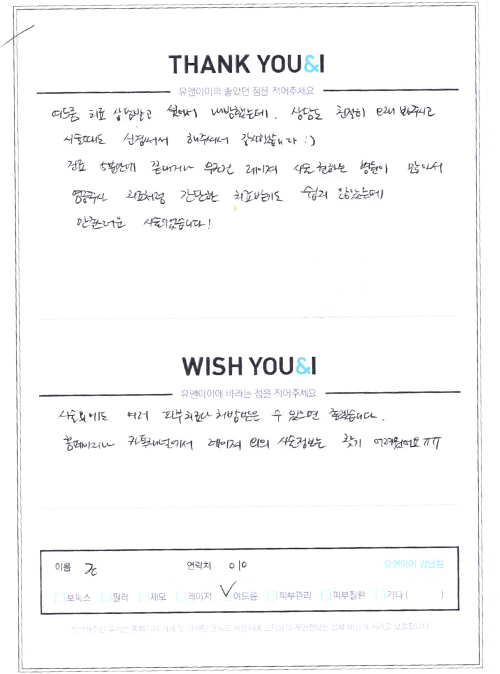 THANK YOU&I
유앤아이의 좋았던 점을 적어주세요
여드름 치료 상담받고 싶어서 내방했는데, 상담도 친절히 오래 봐주시고
시술때도 신경써서 해주셔서 감사했습니다 :)
검표 5분만에 끝내거나 무조건 레이저 시술 권하는 병원이 많아서
염증주사 치료처럼 간단한 치료받기도 쉽지 않았는데
만족스러운 시술이었습니다!
WISH YOU&I
유앤아이에 바라는 점을 적어주세요
시술외에도 여러 피부치료나 처방받을 수 있으면 좋겠습니다.
홈페이지나 카톡채널에서 레이저 외의 시술정보는 찾기 어려웠어요 ㅠㅠ
이름 연락처 010 유앤아이 강남점
보톡스 필러 제모 레이저 여드름 피부관리 피부질환 기타 ( )